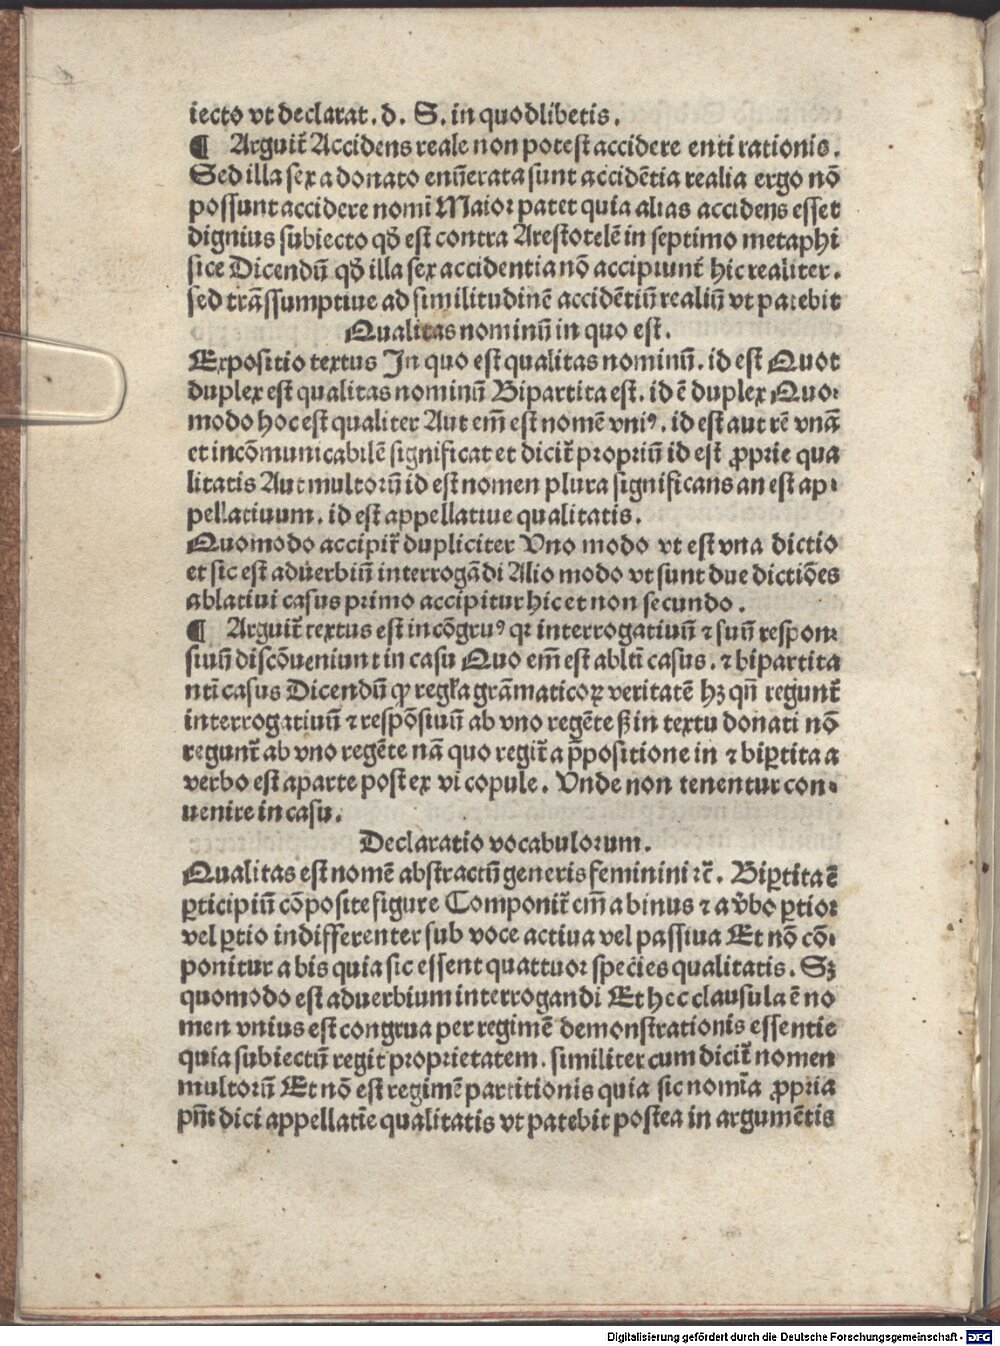 iecto vt declarat. d. S. in quodlibetis.
¶ Arguit̄ Accidens reale non potest accidere enti rationis.
Sed illa sex a donato enūerata sunt accidētia realia ergo nō
possunt accidere nomī Maior patet quia alias accidens esset
dignius subiecto qđ est contra Arestotelē in septimo metaphi
sice Dicendū qđ illa sex accidentia nō accipiunt̄ hic realiter.
sed trāssumptiue ad similitudinē accidētiū realiū vt patebit
Qualitas nominū in quo est.
Expositio textus In quo est qualitas nominū. id est Quot
duplex est qualitas nominū Bipartita est. id ē duplex Quo-
modo hoc est qualiter Aut em̄ est nomē vniꝰ. id est aut rē vnā
et incōmunicabilē significat et dicit̄ propriū id est ꝓprie qua
litatis Aut multorū id est nomen plura significans an est ap-
pellatiuum. id est appellatiue qualitatis.
Quomodo accipit̄ dupliciter Vno modo vt est vna dictio
et sic est aduerbiū interrogādi Alio modo vt sunt due dictiōes
ablatiui casus primo accipitur hic et non secundo.
¶ Arguit̄ textus est incōgruꝰ qꝛ interrogatiuū ⁊ suū respon-
siuū discōueniunt in casu Quo em̄ est ablti̅ casus. ⁊ bipartita
nti̅ casus Dicendū ꝙ regl̄a grāmaticoꝝ veritatē hꝫ qn̄ regunt̄
interrogatiuū ⁊ respōsiuū ab vno regēte ẞ in textu donati nō
regunt̄ ab vno regēte nā quo regit̄ a p̄positione in ⁊ biꝑtita a
verbo est aparte post ex vi copule. Vnde non tenentur con-
uenire in casu.
Declaratio vocabulorum.
Qualitas est nomē abstractū generis feminini ⁊c̄. Biꝑtita ē
ꝑticipiū cōposite figure Componit̄ em̄ a binus ⁊ a v̄bo ꝑtior
vel ꝑtio indifferenter sub voce actiua vel passiua Et nō cō-
ponitur a bis quia sic essent quattuor species qualitatis. Sꝫ
quomodo est aduerbium interrogandi Et hec clausula ē no
men vnius est congrua per regimē demonstrationis essentie
quia subiectū regit proprietatem. similiter cum dicit̄ nomen
multorū Et nō est regimē partitionis quia sic nomīa ꝓpria
pn̄t dici appellatīe qualitatis vt patebit postea in argumētis
Digitalisierung gefördert durch die Deutsche Forschungsgemeinschaft - DFG